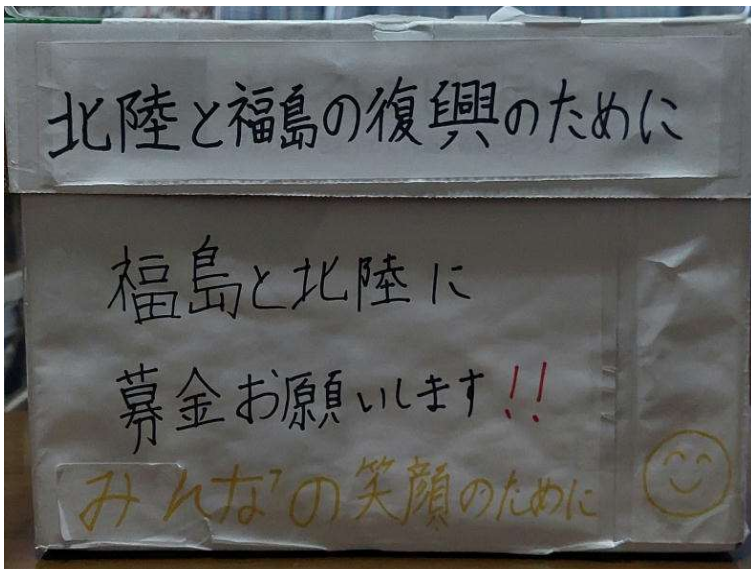 北陸と福島の復興のために
福島と北陸に
募金お願いします!!
みんなの笑顔のために